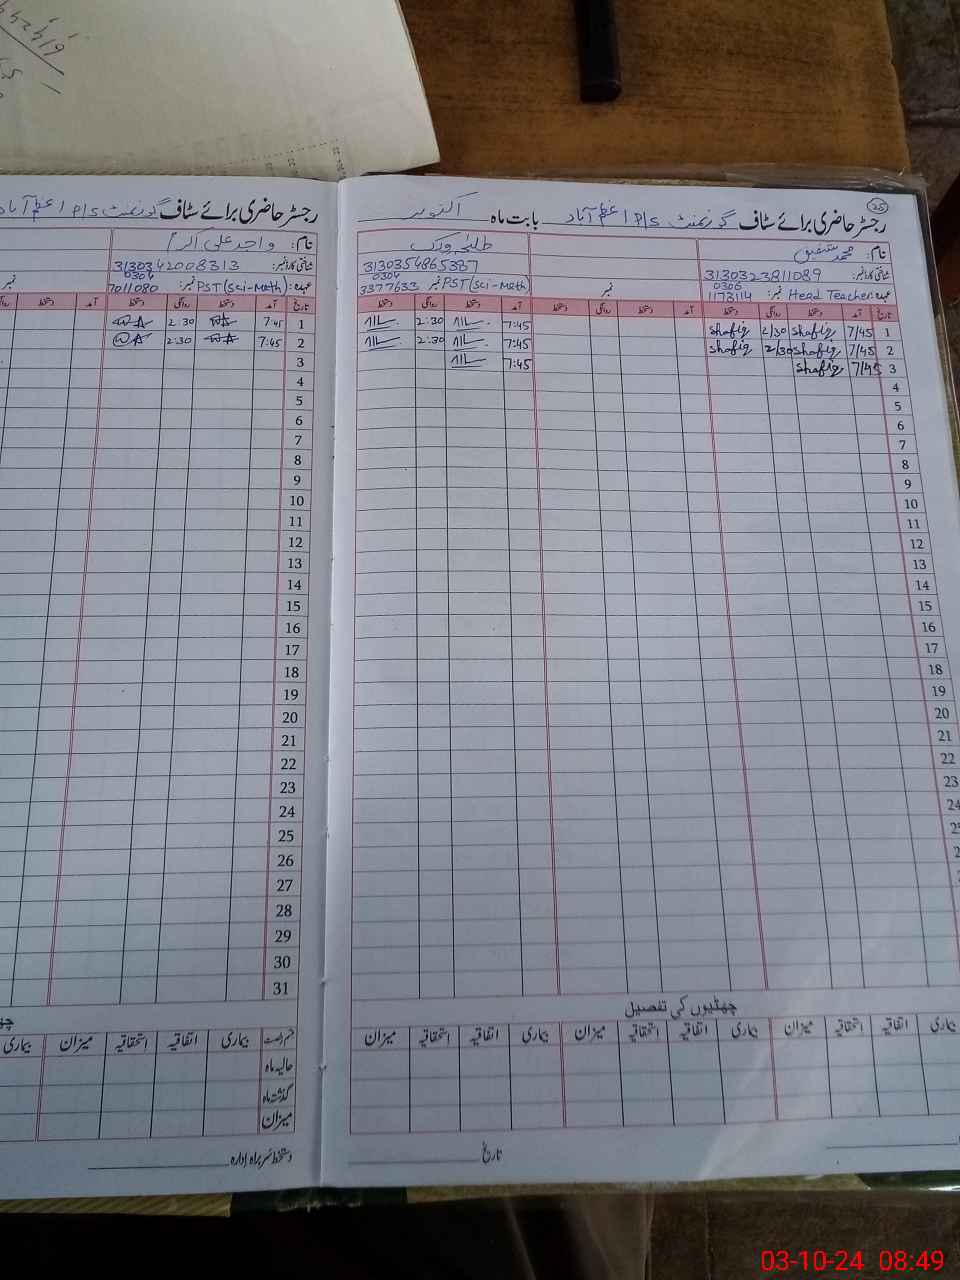 25
رجسٹر حاضری برائے سٹاف گورنمنٹ P/S اعظم آباد بابت ماہ اکتوبر
نام: محمد شفیق
شناختی کارڈ نمبر: 3130323811089
عہدہ: Head Teacher نمبر: 0306 1173114
نمبر
3130354865387
PST(Sci-Math) 0304 3377633
تاریخ آمد دستخط روانگی دستخط آمد دستخط روانگی دستخط آمد دستخط روانگی دستخط
1 7/45 Shafiq 2/30 Shafiq 7:45 2:30
2 7/45 Shafiq 2/30 Shafiq 7:45 2:30
3 7/45 Shafiq 7:45
4
5
6
7
8
9
10
11
12
13
14
15
16
17
18
19
20
21
22
23
24
چھٹیوں کی تفصیل
بیماری اتفاقیہ استحقاقیہ میزان بیماری اتفاقیہ استحقاقیہ میزان بیماری اتفاقیہ استحقاقیہ میزان
تاریخ
رجسٹر حاضری برائے سٹاف گورنمنٹ P/S اعظم آباد
نام: واجد علی اکرم
شناختی کارڈ نمبر: 3130342008313
عہدہ: PST(Sci-Math) نمبر: 0304 7011080
نمبر
تاریخ آمد دستخط روانگی دستخط آمد دستخط
1 7:45 2:30
2 7:45 2:30
3
4
5
6
7
8
9
10
11
12
13
14
15
16
17
18
19
20
21
22
23
24
25
26
27
28
29
30
31
بیماری اتفاقیہ استحقاقیہ میزان بیماری
حالیہ ماہ
گذشتہ ماہ
میزان
دستخط سربراہ ادارہ
03-10-24 08:49